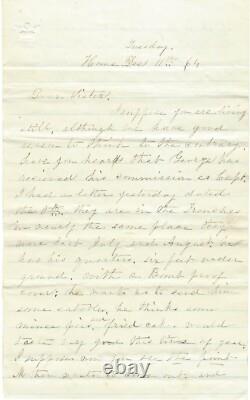 Tuesday.
Home Dec 11th /64
Dear Sister.
I suppose you are living
still, although we have good
reason to think to the contrary.
Have you heard that George has
received his commission as Capt.
I had a letter yesterday dated
the 8th. they are in the Trenches
in nearly the same place they
were last July and August, he
has his quarters, six feet under
ground. with a Bomb proof
cover, he wants us to send him
some eatables, he thinks some
mince pies, fried cakes would
taste very good this time of year,
I suppose you see the
Mother out and
© ebay